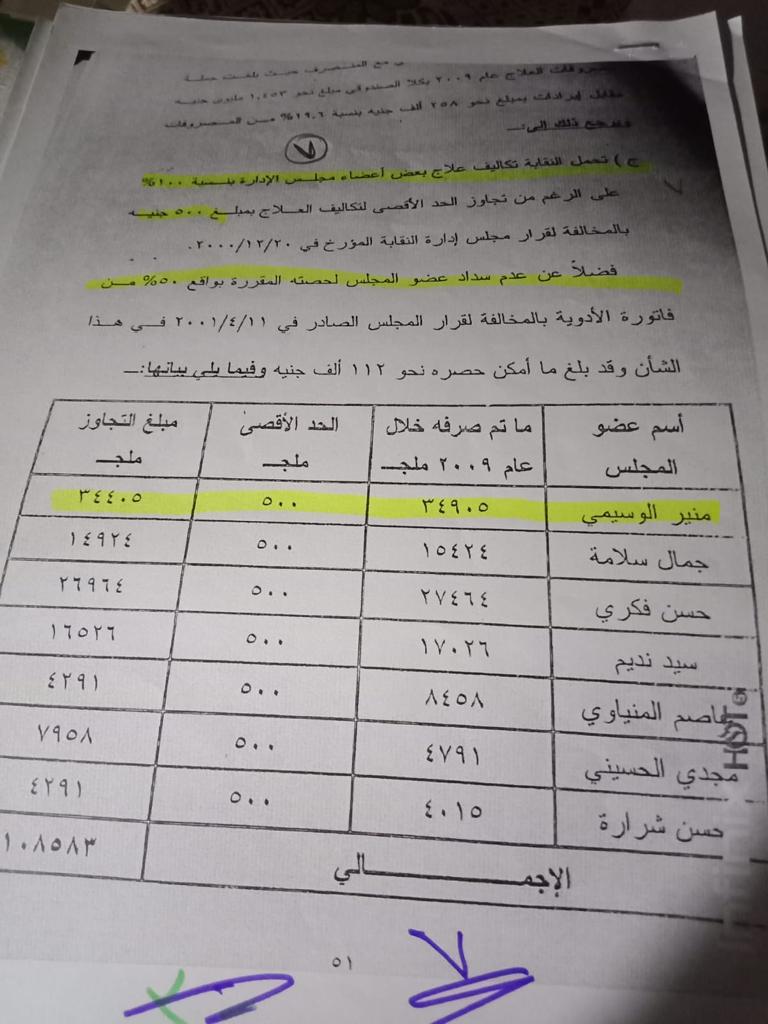 مع المنصرف حيث بلغت جملة
مصروفات العلاج عام ٢٠٠٩ بكلا الصندوقي مبلغ نحو ١,٤٥٣ مليون جنيه
مقابل إيرادات بمبلغ نحو ٢٥٨ ألف جنيه بنسبة ١٩,٦% من المصروفات
ويرجع ذلك إلى:ــ
٧
ج ) تحمل النقابة تكاليف علاج بعض أعضاء مجلس الإدارة بنسبة ١٠٠%
على الرغم من تجاوز الحد الأقصى لتكاليف العلاج بمبلغ ٥٠٠ جنيه
بالمخالفة لقرار مجلس إدارة النقابة المؤرخ في ٢٠٠٠/١٢/٢٠.
فضلاً عن عدم سداد عضو المجلس لحصته المقررة بواقع ٥٠% من
فاتورة الأدوية بالمخالفة لقرار المجلس الصادر في ٢٠٠١/٤/١١ في هذا
الشأن وقد بلغ ما أمكن حصره نحو ١١٢ ألف جنيه وفيما يلي بيانها:ــ
أسم عضو المجلس ما تم صرفه خلال عام ٢٠٠٩ ملجـ الحد الأقصى ملجـ مبلغ التجاوز ملجـ
منير الوسيمي ٣٤٩٠٥ ٥٠٠ ٣٤٤٠٥
جمال سلامة ١٥٤٢٤ ٥٠٠ ١٤٩٢٤
حسن فكري ٢٧٤٦٤ ٥٠٠ ٢٦٩٦٤
سيد نديم ١٧٠٢٦ ٥٠٠ ١٦٥٢٦
عاصم المنياوي ٨٤٥٨ ٥٠٠ ٤٢٩١
مجدي الحسيني ٤٧٩١ ٥٠٠ ٧٩٥٨
حسن شرارة ٤٠١٥ ٥٠٠ ٤٢٩١
الإجمــالي ١٠٨٥٨٣
٥١
HOT